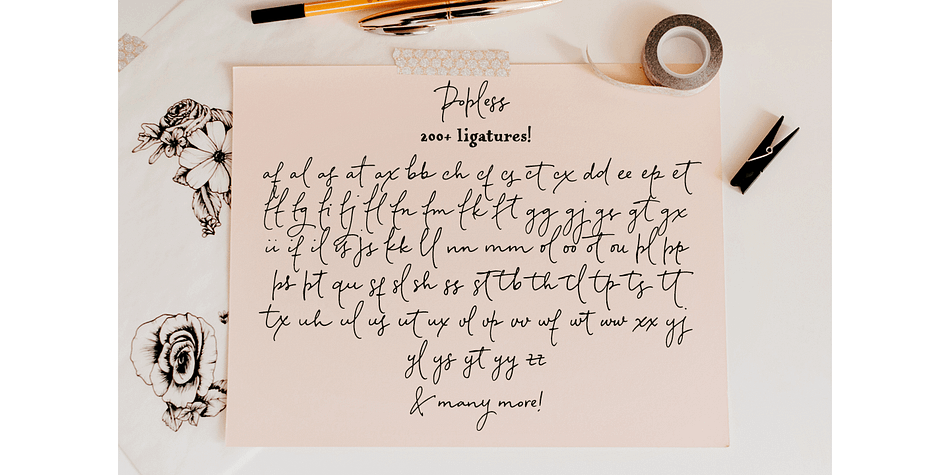 Popless
200+ ligatures!
af al as at ax bb ch cf cs ct cx dd ee ep et
ff fg fi fj fl fn fm fk ft gg gj gs gt gx
ii if il is js kk ll nn mm ol oo ot ou pl pp
ps pt qu sf sl sh ss st tb th tl tp ts tt
tx uh ul us ut ux vl vp vv wf wt ww xx yj
yl ys yt yy zz
& many more!